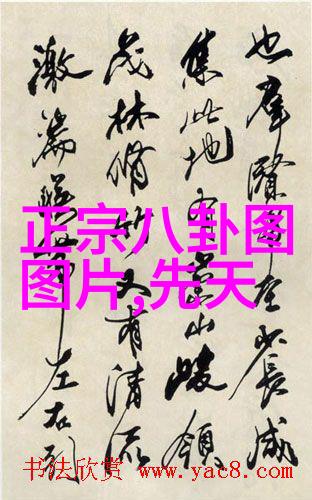 也羣賢畢至少長咸
集此地有崇山峻領
茂林脩竹又有清流
激湍暎帶左右引
正宗八卦图
图片,先天
书法欣赏 www.yac8.com